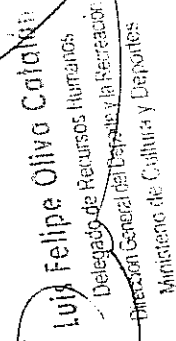 Luis Felipe Oliva Catalán
Delegado de Recursos Humanos
Dirección General del Deporte y la Recreación
Ministerio de Cultura y Deportes